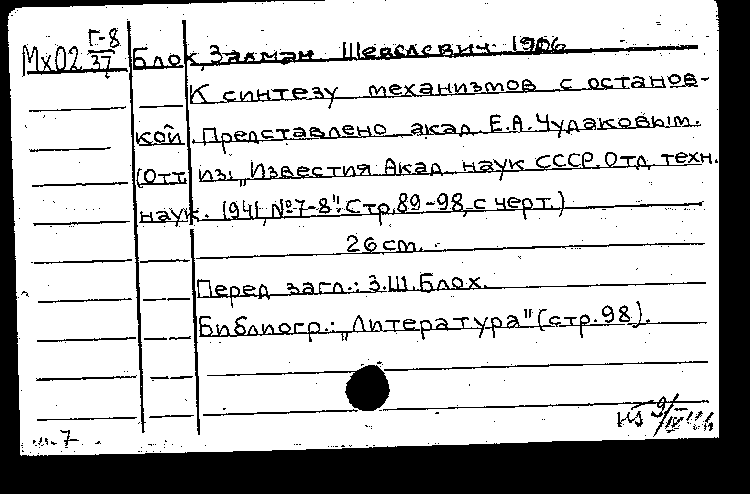 Мх02 Г-8/37 Блох, Залман Шевелевич 1906
К синтезу механизмов с останов-
кой. Представлено акад. Е.А. Чудаковым.
(Отт. из: „Известия Акад. наук СССР. Отд. техн.
наук. 1941, №7-8". Стр. 89-98, с черт.)
26 cm.
Перед загл.: З.Ш. Блох.
Библиогр.: „Литература" (стр. 98).